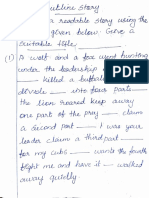 Outline Story
a readable story using the
given below. Give a
suitable title
(1) A wolf and a fox went hunting
under the leadership
killed a buffalo
divide — into four parts —
the lion roared keep away
one part of the prey — claim
a second part — I was your
leader claim a third part —
for my cubs — wants the fourth
fight me and have it — walked
away quietly